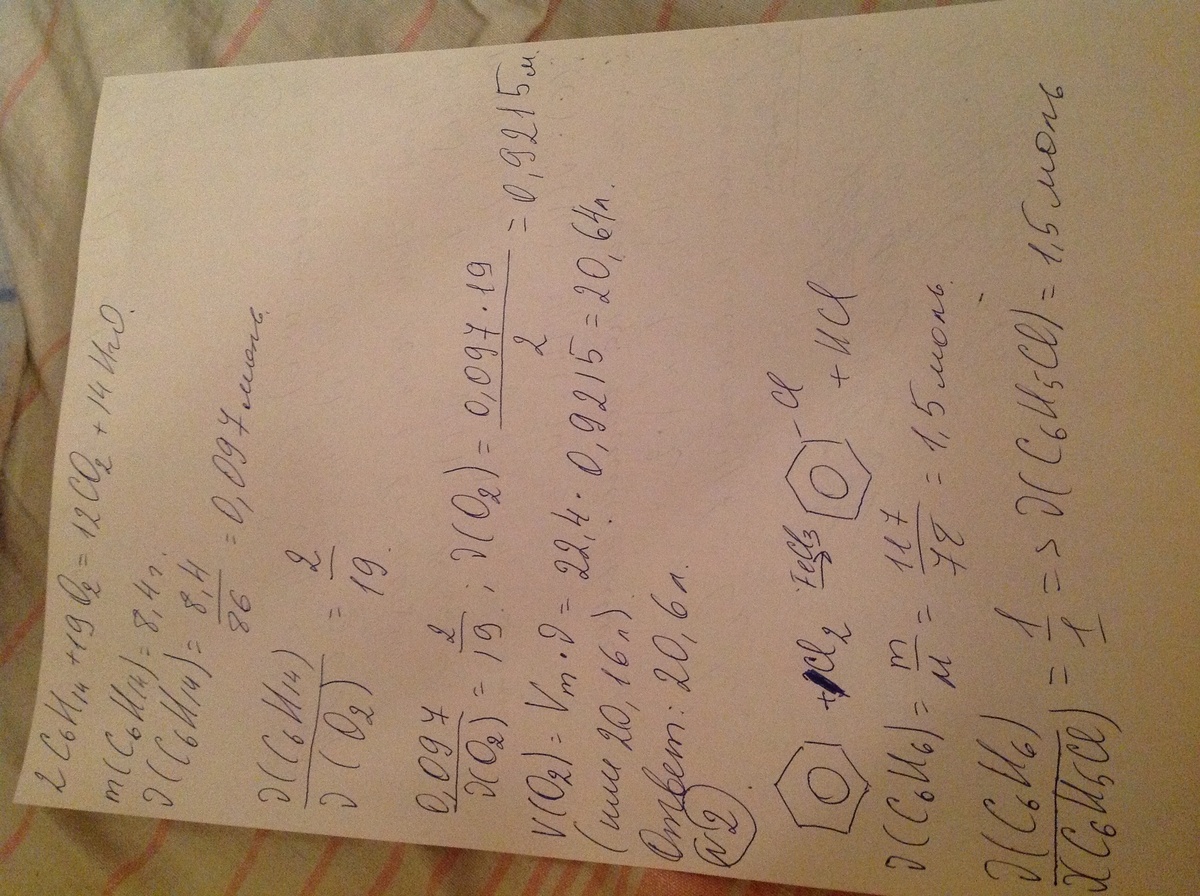 2 C₆H₁₄ + 19 O₂ = 12 CO₂ + 14 H₂O.
m(C₆H₁₄) = 8,4 г.
ν(C₆H₁₄) = 8,4/86 = 0,097 моль
ν(C₆H₁₄)/ν(O₂) = 2/19.
0,097/ν(O₂) = 2/19 ; ν(O₂) = 0,097·19/2 = 0,9215 м.
V(O₂) = Vm·ν = 22,4·0,9215 = 20,64 л.
(или 20,16 л)
Ответ: 20,6 л.
№2
+ Cl₂ FeCl₃ -Cl + HCl
ν(C₆H₆) = m/M = 117/78 = 1,5 моль.
ν(C₆H₆)/ν(C₆H₅Cl) = 1/1 => ν(C₆H₅Cl) = 1,5 моль